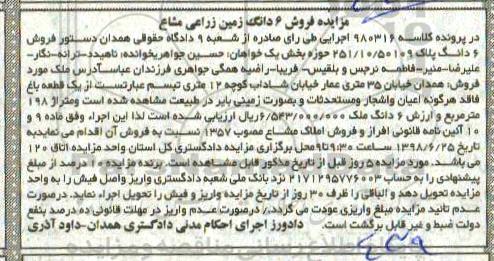 مزایده فروش ۶ دانگ زمین زراعی مشاع
در پرونده کلاسه ۹۸۰۳۱۶ اجرایی طی رای صادره از شعبه ۹ دادگاه حقوقی همدان دستور فروش
۶ دانگ پلاک ۲۵۱/۱۰/۵۰۱۰۹ حوزه بخش یک خواهان: حسین جواهریخوانده: ناهیدد-ترانه-نگار-
علیرضا-منیر-فاطمه نرجس و بلقیس- فریبا-راضیه همگی جواهری فرزندان عباسآدرس ملک مورد
فروش: همدان خیابان ۳۵ متری عمار خیابان شاداب کوچه ۱۲ متری تبسم عبارتست از یک قطعه باغ
فاقد هرگونه اعیان واشجار ومستحدثات و بصورت زمینی بایر در طبیعت مشاهده شده است ومتراژ ۱۹۸
مترمربع و ارزش ۶ دانگ ملک ۶/۵۴۳/۰۰۰/۰۰۰ریال ارزیابی شده است لذا این اجراء وفق ماده ۹ و
۱۰ آیین نامه قانونی افراز و فروش املاک مشاع مصوب ۱۳۵۷ نسبت به فروش آن اقدام می نمایدبه
تاریخ ۱۳۹۸/۶/۲۵ ساعت ۹:۳۰تا۹محل برگزاری مزایده دادگستری کل استان واحد مزایده اتاق ۱۲۰
می باشد. مورد مزایده ۵ روز قبل از تاریخ مذکور قابل مشاهده است. برنده مزایده ۱۰ درصد از مبلغ
پیشنهادی را به حساب ۲۱۷۱۲۹۵۷۷۶۰۰۳ نزد بانک ملی شعبه دادگستری واریز واصل فیش را به واحد
مزایده تحویل دهد و الباقی را ظرف ۳۰ روز از تاریخ مزایده واریز و فیش را تحویل اجراء نماید. درصورت
عدم تائید مزایده مبلغ واریزی عودت می گردد./ درصورت عدم واریز در مهلت قانونی ده درصد بنفع
دولت ضبط و غیر قابل برگشت است. دادورز اجرای احکام مدنی دادگستری همدان-داود آذری